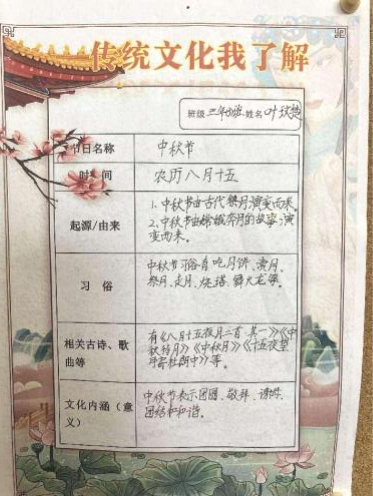 传统文化我了解
班级 三年 班 姓名 叶
节日名称
中秋节
时 间
农历八月十五
起源/由来
1、中秋节由古代祭月演变而来。
2、中秋节由嫦娥奔月的故事演
变而来。
习 俗
中秋节习俗有吃月饼、赏月、
祭月、走月、烧塔、舞火龙等。
相关古诗、歌
曲等
有《八月十五夜月二首·其一》《中
秋待月》《中秋月》《十五夜望
月寄杜郎中》等。
文化内涵（意
义）
中秋节表示团圆、敬拜、
团结和和谐。